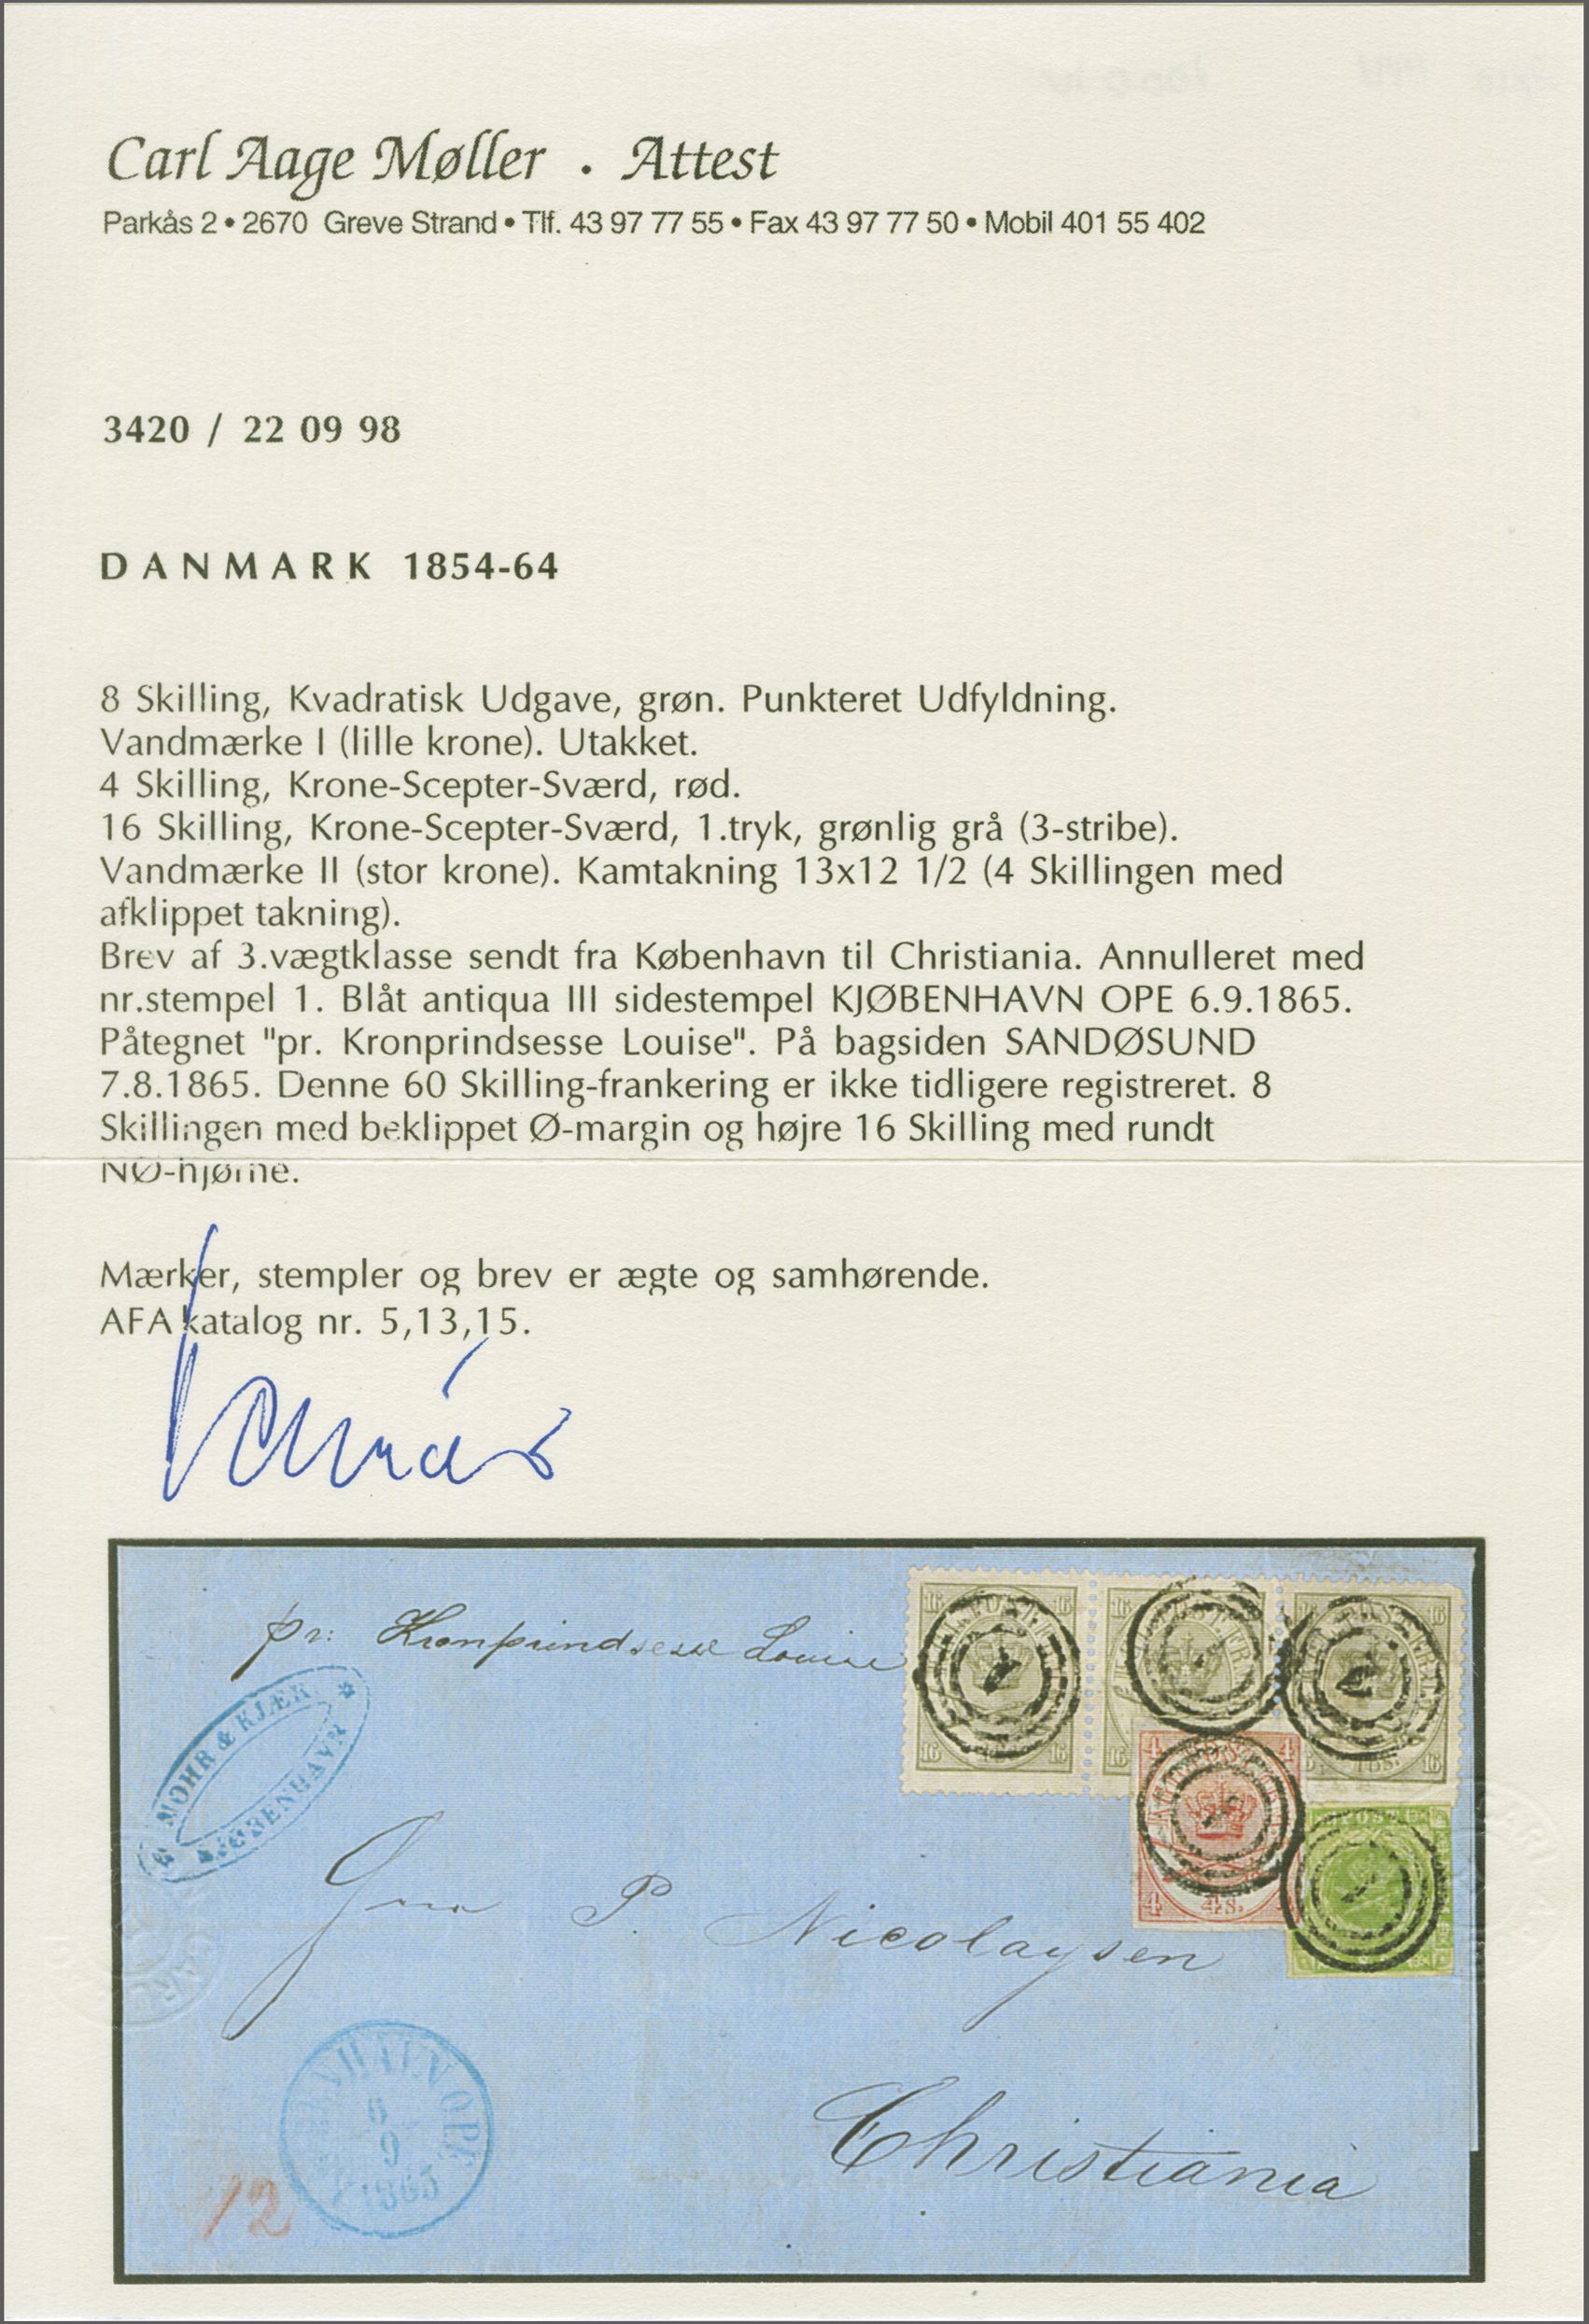 Carl Aage Møller . Attest
Parkås 2 • 2670 Greve Strand • Tlf. 43 97 77 55 • Fax 43 97 77 50 • Mobil 401 55 402
3420 / 22 09 98
DANMARK 1854-64
8 Skilling, Kvadratisk Udgave, grøn. Punkteret Udfyldning.
Vandmærke I (lille krone). Utakket.
4 Skilling, Krone-Scepter-Sværd, rød.
16 Skilling, Krone-Scepter-Sværd, 1.tryk, grønlig grå (3-stribe).
Vandmærke II (stor krone). Kamtakning 13x12 1/2 (4 Skillingen med
afklippet takning).
Brev af 3.vægtklasse sendt fra København til Christiania. Annulleret med
nr.stempel 1. Blåt antiqua III sidestempel KJØBENHAVN OPE 6.9.1865.
Påtegnet "pr. Kronprindsesse Louise". På bagsiden SANDØSUND
7.8.1865. Denne 60 Skilling-frankering er ikke tidligere registreret. 8
Skillingen med beklippet Ø-margin og højre 16 Skilling med rundt
NØ-hjørne.
Mærker, stempler og brev er ægte og samhørende.
AFA katalog nr. 5,13,15.
pr: Kronprindsesse Louise
MOHR & KJÆR
KJØBENHAVN
16 16 16 16 16
16 16 16 16
4 4
4 4S.
P. Nicolaysen
Christiania
ENHAVN OPE
6
9
1865
12